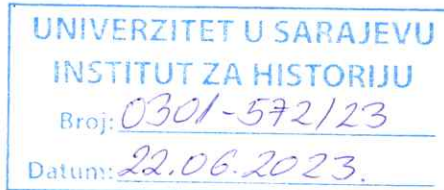 UNIVERZITET U SARAJEVU
INSTITUT ZA HISTORIJU
Broj: 0301-572/23
Datum: 22.06.2023.